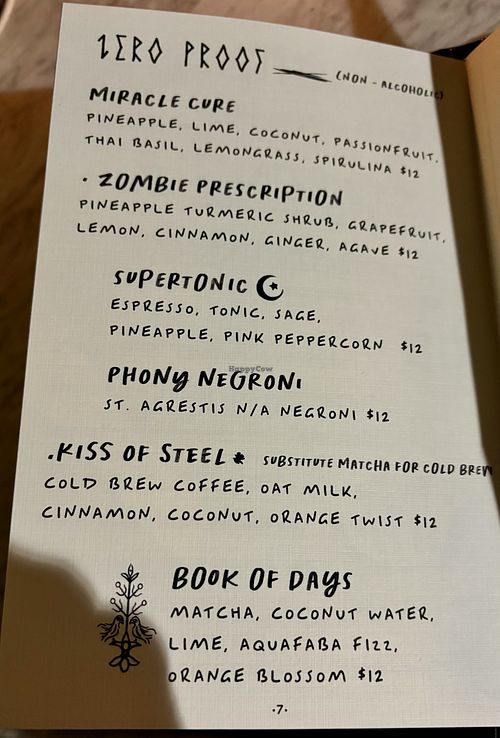 ZERO PROOF (NON-ALCOHOLIC)
MIRACLE CURE
PINEAPPLE, LIME, COCONUT, PASSIONFRUIT,
THAI BASIL, LEMONGRASS, SPIRULINA $12
· ZOMBIE PRESCRIPTION
PINEAPPLE TURMERIC SHRUB, GRAPEFRUIT,
LEMON, CINNAMON, GINGER, AGAVE $12
SUPERTONIC
ESPRESSO, TONIC, SAGE,
PINEAPPLE, PINK PEPPERCORN $12
HappyCow
PHONY NEGRONI
ST. AGRESTIS N/A NEGRONI $12
.KISS OF STEEL * SUBSTITUTE MATCHA FOR COLD BREW
COLD BREW COFFEE, OAT MILK,
CINNAMON, COCONUT, ORANGE TWIST $12
BOOK OF DAYS
MATCHA, COCONUT WATER,
LIME, AQUAFABA FIZZ,
ORANGE BLOSSOM $12
·7·